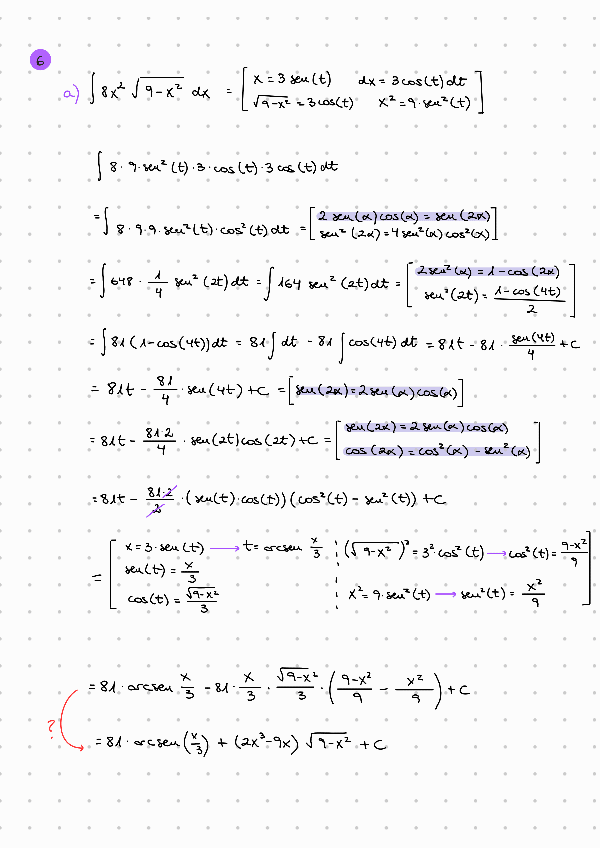 6
a) ∫ 8x² √(9-x²) dx = [ x = 3 sen(t) dx = 3 cos(t) dt
√(9-x²) = 3 cos(t) x² = 9·sen²(t) ]
∫ 8·9·sen²(t)·3·cos(t)·3 cos(t) dt
= ∫ 8·9·9·sen²(t)·cos²(t) dt = [ 2 sen(α) cos(α) = sen(2α)
sen²(2α) = 4 sen²(α) cos²(α) ]
= ∫ 648 · 1/4 sen²(2t) dt = ∫ 164 sen²(2t) dt = [ 2 sen²(α) = 1-cos(2α)
sen²(2t) = (1-cos(4t))/2 ]
= ∫ 81 (1-cos(4t)) dt = 81 ∫ dt - 81 ∫ cos(4t) dt = 81t - 81 · sen(4t)/4 + C
= 81t - 81/4 · sen(4t) + C = [ sen(2α) = 2 sen(α) cos(α) ]
= 81t - 81·2/4 · sen(2t) cos(2t) + C = [ sen(2α) = 2 sen(α) cos(α)
cos(2α) = cos²(α) - sen²(α) ]
= 81t - 81·2/2 · (sen(t)·cos(t)) (cos²(t) - sen²(t)) + C
= [ x = 3·sen(t) → t = arcsen x/3 (√(9-x²))² = 3² cos²(t) → cos²(t) = (9-x²)/9
sen(t) = x/3
cos(t) = √(9-x²)/3 x² = 9·sen²(t) → sen²(t) = x²/9 ]
= 81 · arcsen x/3 - 81 · x/3 · √(9-x²)/3 · ( (9-x²)/9 - x²/9 ) + C
?
= 81 · arcsen (x/3) + (2x³-9x) √(9-x²) + C